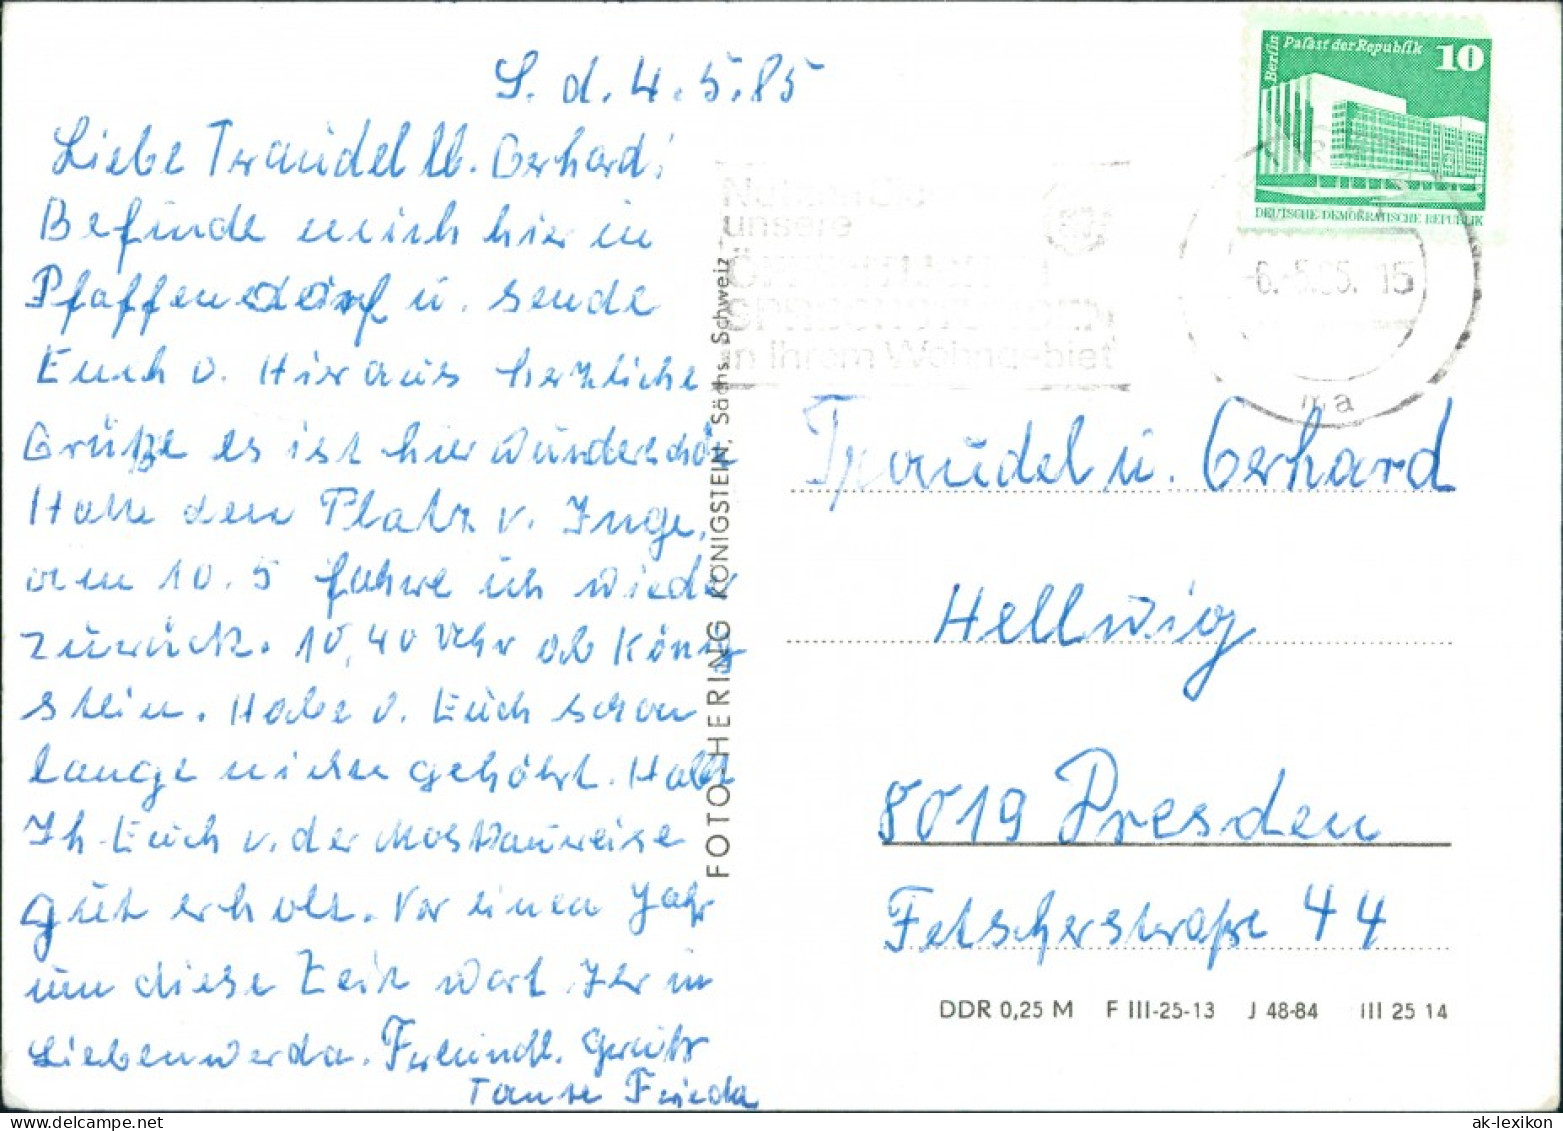 S. d. 4.5.85
Liebe Traudel lb. Gerhard!
Befinde mich hier in
Pfaffendorf u. sende
Euch v. Hieraus herzliche
Grüße es ist hier wunderschön
Hatte den Platz v. Inge,
am 10.5 fahre ich wieder
zurück. 10,40 Uhr ab König
stein. Habe v. Euch schon
lange nichts gehört. Habt
Ih Euch v. der
gut erholt. Vor einen Jahr
um diese Zeit wart Ihr in
Liebenwerda. Freundl. Grüße
Tante Frieda
FOTO-HERING KÖNIGSTEIN, Sächs. Schweiz
Berlin
Palast der Republik 10
DEUTSCHE DEMOKRATISCHE REPUBLIK
Nutzen Sie
unsere
ÖFFENTLICHEN
in Ihrem Wohngebiet
-6.-5.85.-15
Traudel u. Gerhard
Hellwig
8019 Dresden
Fetscherstraße 44
DDR 0,25 M F III-25-13 J 48-84 III 25 14
ak-lexikon.com